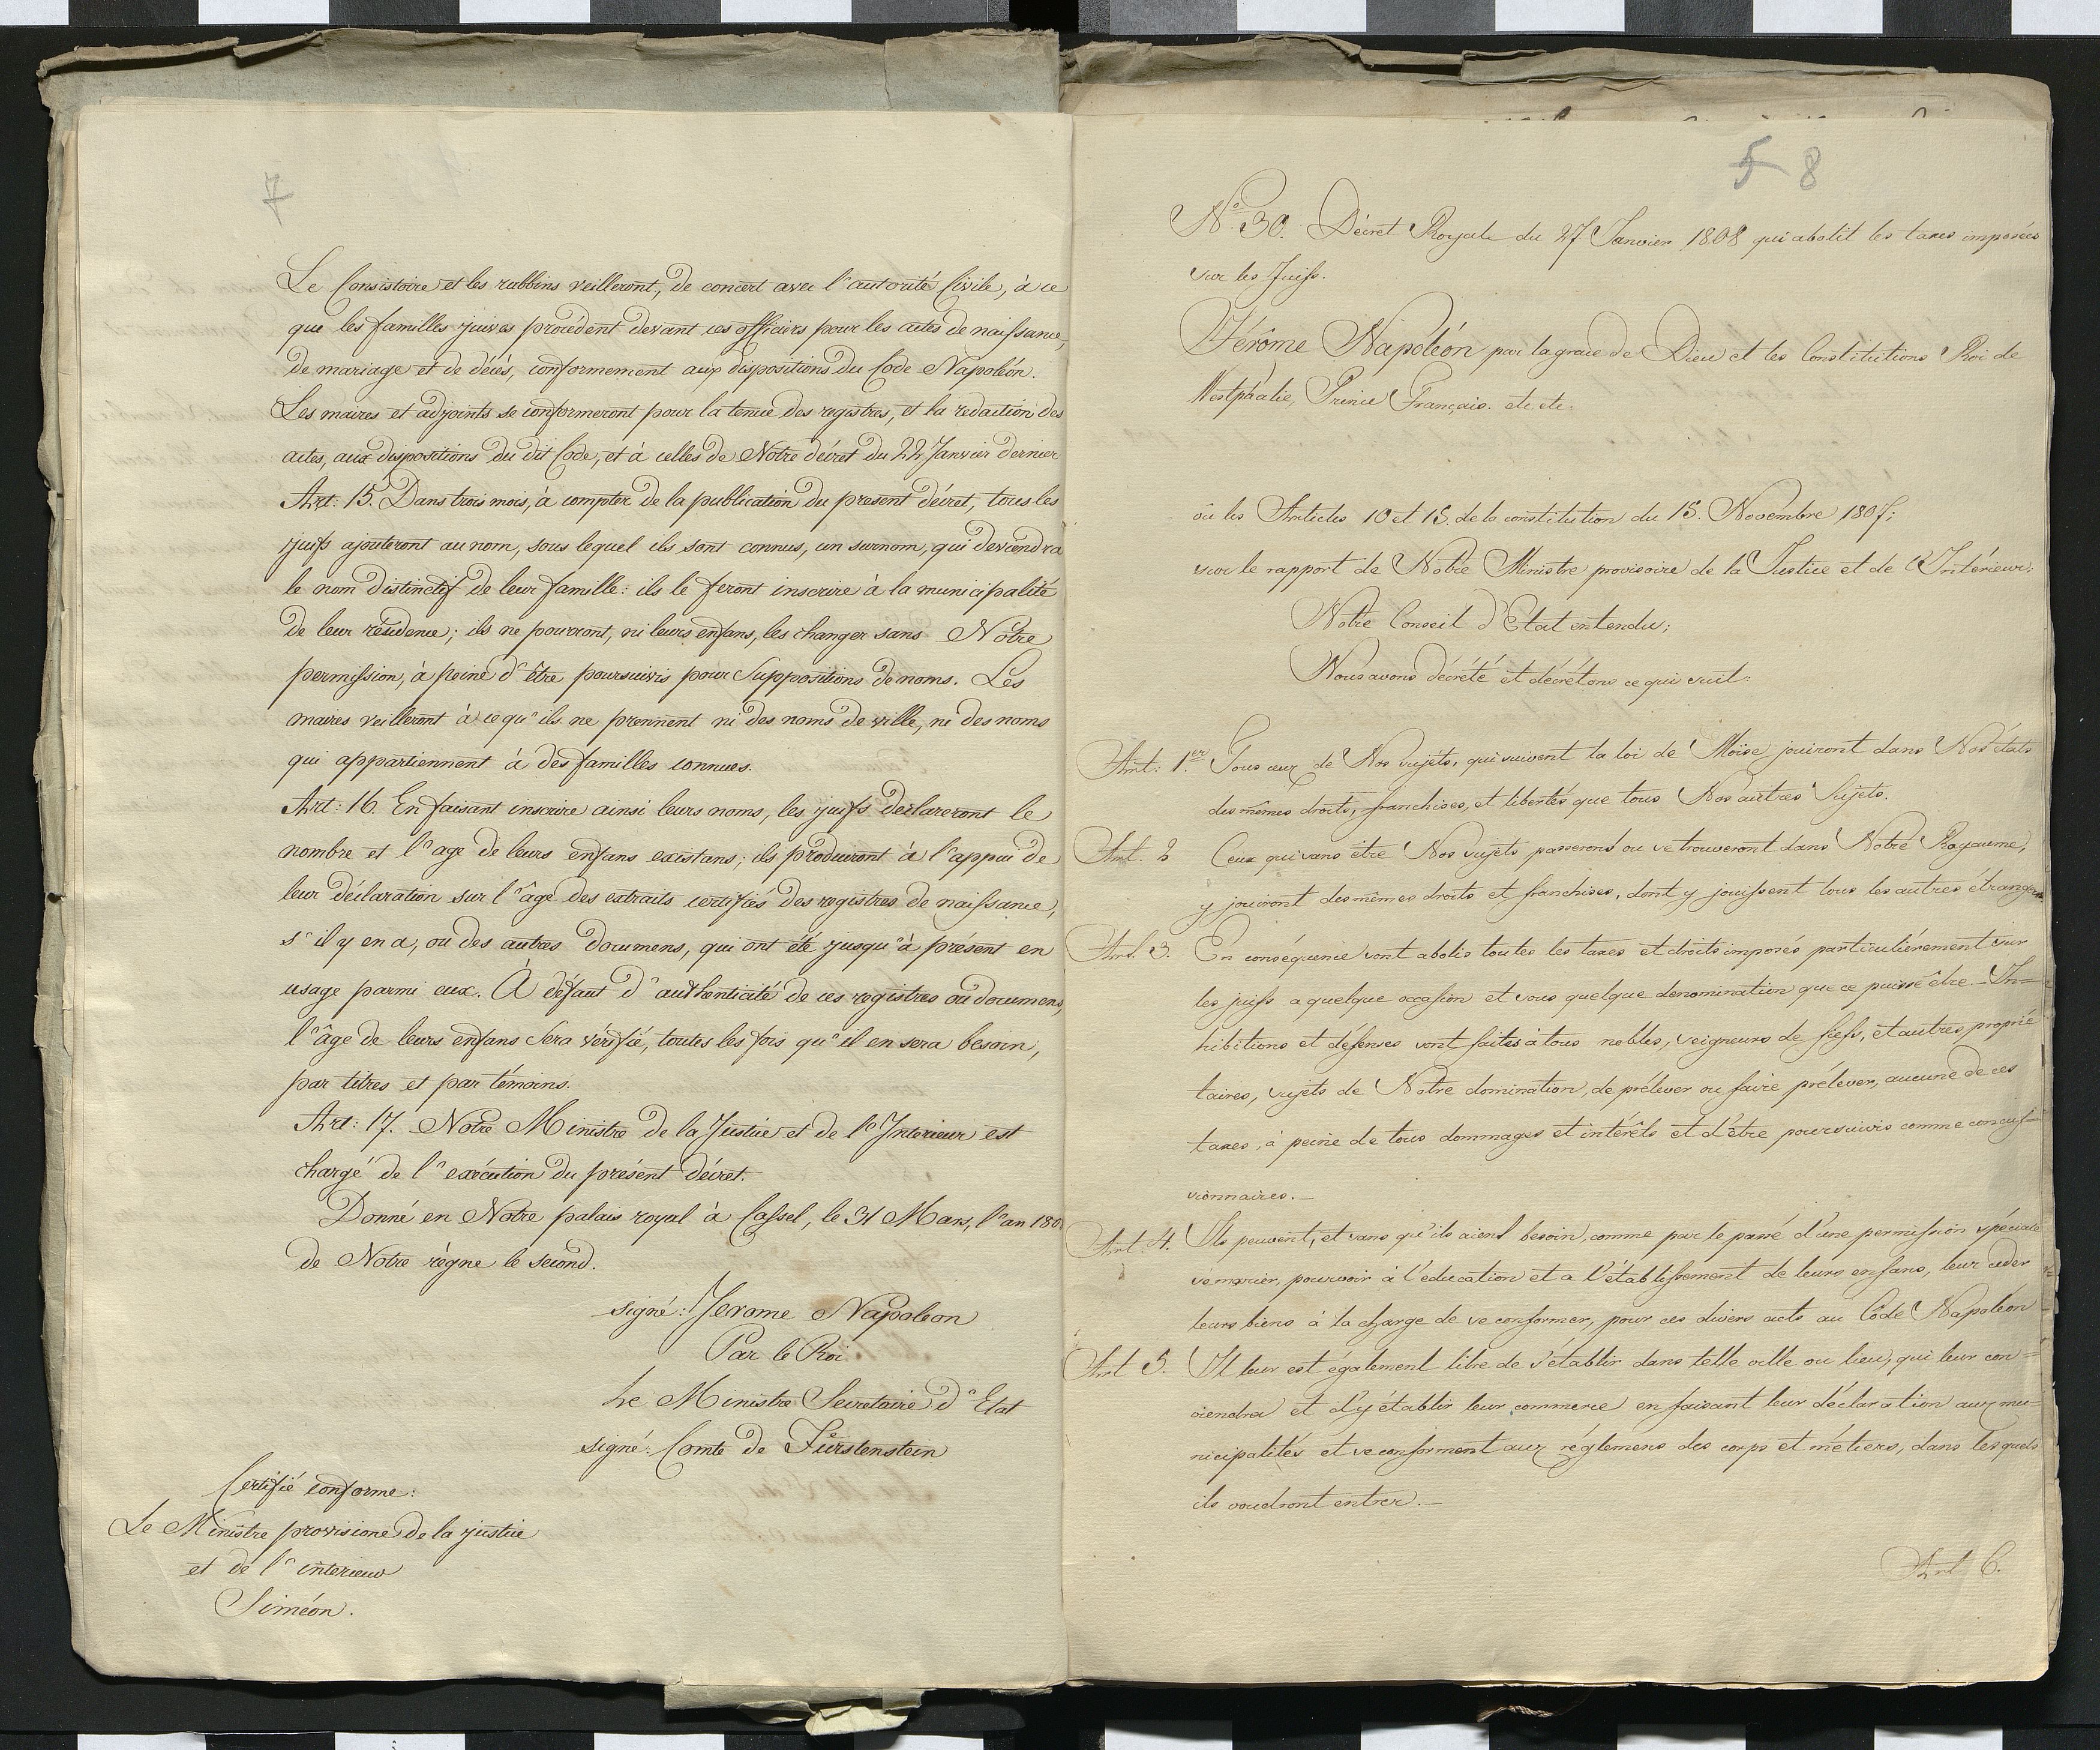 7
Le Consistoire et les rabbins veilleront, de concert avec l'autorité Civile, à ce
que les familles juives procédent devant ces officiers pour les actes de naissance,
de mariage et de décés, conformement aux dispositions du Code Napoléon.
Les maires et adjoints se conformeront pour la tenue des registres, et la redaction des
actes, aux dispositions du dit Code, et à celles de Notre décret du 22 Janvier dernier
Art: 15. Dans trois mois, à compter de la publication du present décret, tous les
juifs ajouteront au nom, sous lequel ils sont connus, un surnom, qui deviendra
le nom distinctif de leur famille: ils le feront inscrire à la municipalité
de leur résidence; ils ne pourront, ni leurs enfans, les changer sans Notre
permission, à peine d'être poursuivis pour Suppositions de noms. Les
maires veilleront à ce qu'ils ne prennent ni des noms de ville, ni des noms
qui appartiennent à des familles connues.
Art: 16. En faisant inscrire ainsi leurs noms, les juifs declareront le
nombre et l'age de leurs enfans existans; ils produiront à l'appui de
leur déclaration sur l'âge des extraits certifiés des registres de naissance,
s'il y en a, ou des autres documens, qui ont été jusqu'à présent en
usage parmi eux. À défaut d'authenticité de ces registres ou documens,
l'âge de leurs enfans sera vérifié, toutes les fois qu'il en sera besoin,
par titres et par témoins.
Art: 17. Notre Ministre de la Justice et de l'Interieur est
chargé de l'exécution du présent décret.
Donné en Notre palais royal à Cassel, le 31 Mars, l'an 180
de Notre règne le second.
signé: Jerome Napoleon
Par le Roi
Le Ministre Secretaire d'Etat
signé: Comte de Fürstenstein
Certifié conforme:
Le Ministre provisione de la justice
et de l'interieur
Siméon.
5 8
N.º 30. Décret Royale du 27 Janvier 1808 qui abolit les taxes imposées
sur les Juifs.
Jérôme Napoléon par la grace de Dieu et les Constitutions Roi de
Westphalie, Prince Français. etc etc.
où les Articles 10 et 15. de la constitution du 15. Novembre 1807;
sur le rapport de Notre Ministre provisoire de la Justice et de l'Intérieur;
Notre Conseil d'Etat entendu;
Nous avons décrété et décrétons ce qui suit:
Art: 1.er Tous ceux de Nos sujets, qui suivent la loi de Moïse jouiront dans Nos états
des mêmes droits, franchises, et libertés que tous Nos autres Sujets.
Art. 2 Ceux qui sans être Nos sujets passerons ou se trouveront dans Notre Royaume,
y jouiront des mêmes droits et franchises, dont y jouissent tous les autres étrangers
Art. 3. En conséquence sont abolis toutes les taxes et droits imposés particulièrement sur
les juifs a quelque occasion et sous quelque denomination que ce puisse être. - In=
hibitions et défenses sont faites à tous nobles, seigneurs de fiefs, et autres proprié
taires, sujets de Notre domination, de prélever ou faire prélever, aucune de ces
taxes, à peine de tous dommages et intérêts et d'être poursuivis comme concus=
sionnaires. -
Art: 4. Ils peuvent, et sans qu'ils aient besoin, comme par le passé d'une permission spéciale
se marier, pourvoir à l'education et a l'établissement de leurs enfans, leur ceder
leurs biens à la charge de se conformer, pour ces divers acts au Côde Napoléon
Art 5. Il leur est également libre de s'établir dans telle ville ou lieu, qui leur con=
viendra et d'y établir leur commerce en faisant leur déclaration aux mu=
nicipalités et se conforment aux réglemens des corps et métiers, dans lesquels
ils voudront entrer. -
Art 6.